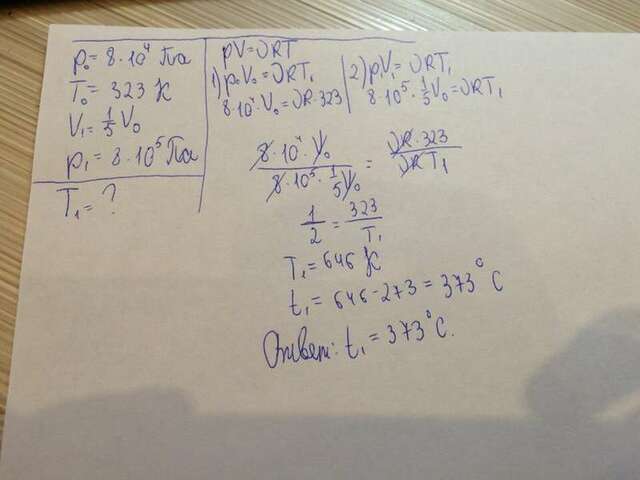 p₀ = 8 · 10⁴ Па
T₀ = 323 К
V₁ = 1/5 V₀
p₁ = 8 · 10⁵ Па
T₁ = ?
pV = νRT
1) p₀V₀ = νRT₁
8 · 10⁴ · V₀ = νR · 323
2) p₁V₁ = νRT₁
8 · 10⁵ · 1/5 V₀ = νRT₁
8 · 10⁴ · V₀ / 8 · 10⁵ · 1/5 V₀ = νR · 323 / νRT₁
1/2 = 323/T₁
T₁ = 646 К
t₁ = 646 - 273 = 373°C
Ответ: t₁ = 373°C.